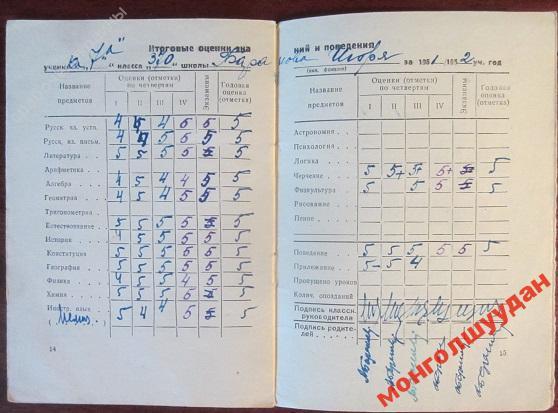 Итоговые оценки зна
ученика „7а“ класса 370 школы
Название предметов
Оценки (отметки) по четвертям
I II III IV
Экзамены
Годовая оценка (отметка)
Русск. яз. устн. 4 5 4 5 5 5
Русск. яз. письм. 4 4 5 5 5
Литература 5 5 5 5 5
Арифметика
Алгебра 4 5 4 4 5 5
Геометрия 4 5 4 5 5 5
Тригонометрия
Естествознание 5 5 5 5 5
История 4 5 5 5 5 5
Конституция 5 5 5 5 5 5
География 5 5 5 5 5
Физика 5 5 5 4 5 5
Химия 5 5 5 5 5
Иностр. язык 5 4 4 5 5
14
ний и поведения
Игоря за 1951-1952 уч. год
(имя, фамилия)
Название предметов
Оценки (отметки) по четвертям
I II III IV
Экзамены
Годовая оценка (отметка)
Астрономия
Психология
Логика
Черчение 5 5+ 5+ 5+ 5
Физкультура 5 5 5 5
Рисование
Пение
Поведение 5 5 5 5 5 5
Прилежание 5- 5 4
Пропущено уроков
Колич. опозданий
Подпись классн. руководителя
Подпись родителей
15
монголшуудан